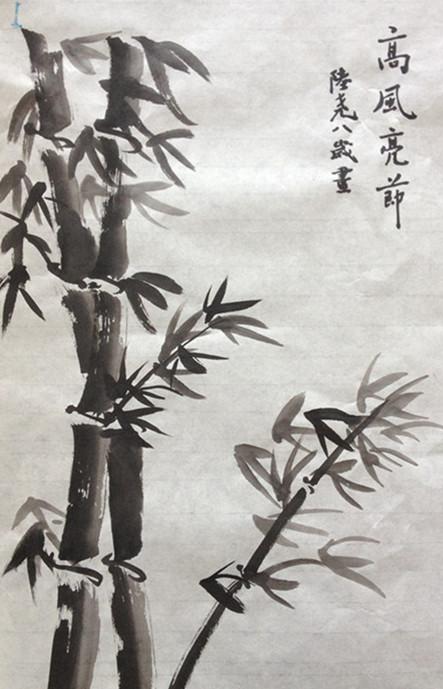 高風亮節
陸堯八歲畫